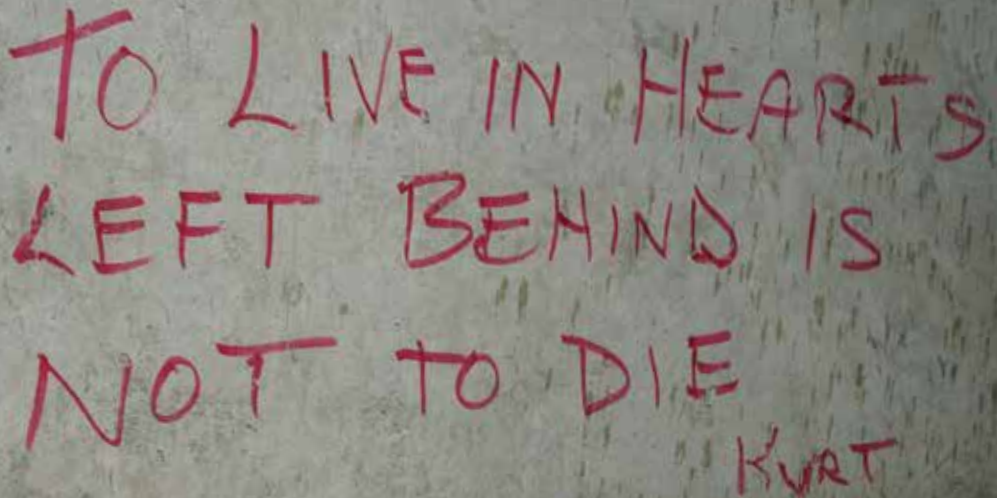 TO LIVE IN HEARTS
LEFT BEHIND IS
NOT TO DIE
KURT